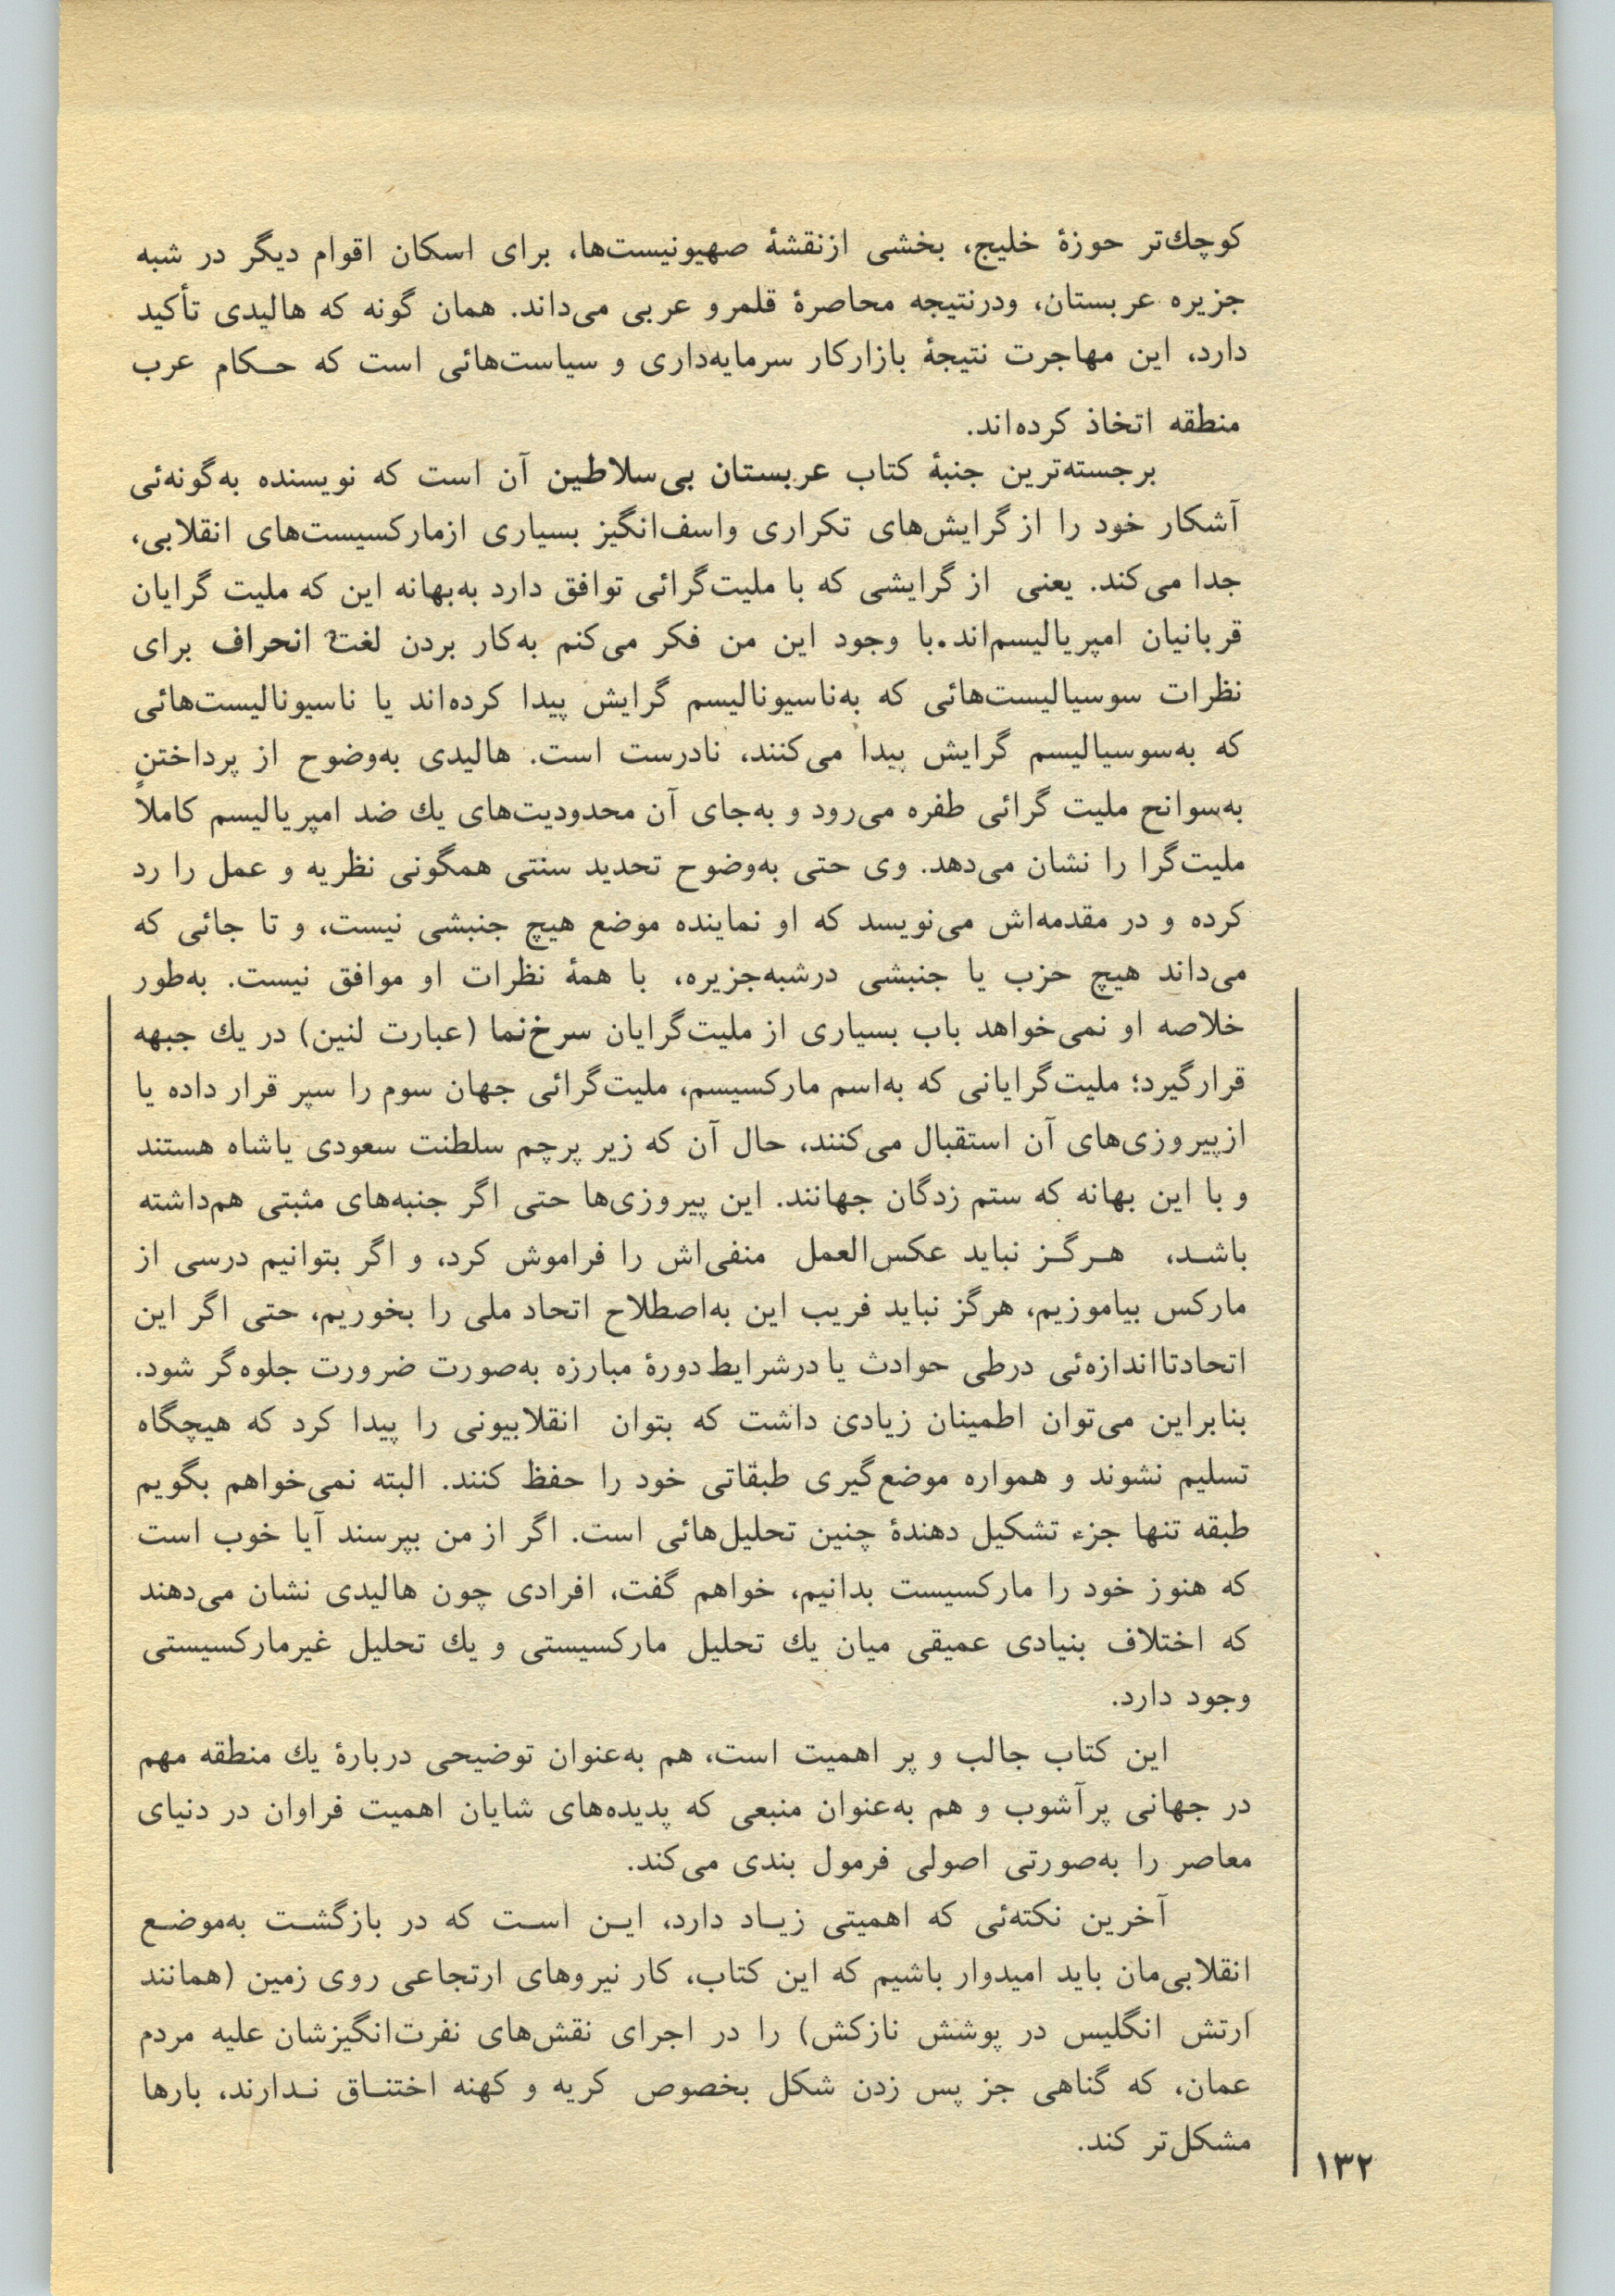 کوچك‌تر حوزهٔ خلیج، بخشی ازنقشهٔ صهیونیست‌ها، برای اسکان اقوام دیگر در شبه
جزیره عربستان، ودرنتیجه محاصرهٔ قلمرو عربی می‌داند. همان گونه که هالیدی تأکید
دارد، این مهاجرت نتیجهٔ بازارکار سرمایه‌داری و سیاست‌هائی است که حـکام عرب
منطقه اتخاذ کرده‌اند.
برجسته‌ترین جنبهٔ کتاب عربستان بی‌سلاطین آن است که نویسنده به‌گونه‌ئی
آشکار خود را از گرایش‌های تکراری واسف‌انگیز بسیاری ازمارکسیست‌های انقلابی،
جدا می‌کند. یعنی از گرایشی که با ملیت‌گرائی توافق دارد به‌بهانه این که ملیت گرایان
قربانیان امپریالیسم‌اند.با وجود این من فکر می‌کنم به‌کار بردن لغت انحراف برای
نظرات سوسیالیست‌هائی که به‌ناسیونالیسم گرایش پیدا کرده‌اند یا ناسیونالیست‌هائی
که به‌سوسیالیسم گرایش پیدا می‌کنند، نادرست است. هالیدی به‌وضوح از پرداختن
به‌سوانح ملیت گرائی طفره می‌رود و به‌جای آن محدودیت‌های یك ضد امپریالیسم کاملاً
ملیت‌گرا را نشان می‌دهد. وی حتی به‌وضوح تحدید سنتی همگونی نظریه و عمل را رد
کرده و در مقدمه‌اش می‌نویسد که او نماینده موضع هیچ جنبشی نیست، و تا جائی که
می‌داند هیچ حزب یا جنبشی درشبه‌جزیره، با همهٔ نظرات او موافق نیست. به‌طور
خلاصه او نمی‌خواهد باب بسیاری از ملیت‌گرایان سرخ‌نما (عبارت لنین) در یك جبهه
قرارگیرد؛ ملیت‌گرایانی که به‌اسم مارکسیسم، ملیت‌گرائی جهان سوم را سپر قرار داده یا
ازپیروزی‌های آن استقبال می‌کنند، حال آن که زیر پرچم سلطنت سعودی یاشاه هستند
و با این بهانه که ستم زدگان جهانند. این پیروزی‌ها حتی اگر جنبه‌های مثبتی هم‌داشته
باشـد، هـرگـز نباید عکس‌العمل منفی‌اش را فراموش کرد، و اگر بتوانیم درسی از
مارکس بیاموزیم، هرگز نباید فریب این به‌اصطلاح اتحاد ملی را بخوریم، حتی اگر این
اتحادتااندازه‌ئی درطی حوادث یا درشرایط دورهٔ مبارزه به‌صورت ضرورت جلوه‌گر شود.
بنابراین می‌توان اطمینان زیادی داشت که بتوان انقلابیونی را پیدا کرد که هیچگاه
تسلیم نشوند و همواره موضع‌گیری طبقاتی خود را حفظ کنند. البته نمی‌خواهم بگویم
طبقه تنها جزء تشکیل دهندهٔ چنین تحلیل‌هائی است. اگر از من بپرسند آیا خوب است
که هنوز خود را مارکسیست بدانیم، خواهم گفت، افرادی چون هالیدی نشان می‌دهند
که اختلاف بنیادی عمیقی میان یك تحلیل مارکسیستی و یك تحلیل غیرمارکسیستی
وجود دارد.
این کتاب جالب و پر اهمیت است، هم به‌عنوان توضیحی دربارهٔ یك منطقه مهم
در جهانی پرآشوب و هم به‌عنوان منبعی که پدیده‌های شایان اهمیت فراوان در دنیای
معاصر را به‌صورتی اصولی فرمول بندی می‌کند.
آخرین نکته‌ئی که اهمیتی زیـاد دارد، ایـن اسـت که در بازگشـت به‌موضـع
انقلابی‌مان باید امیدوار باشیم که این کتاب، کار نیروهای ارتجاعی روی زمین (همانند
ارتش انگلیس در پوشش نازکش) را در اجرای نقش‌های نفرت‌انگیزشان علیه مردم
عمان، که گناهی جز پس زدن شکل بخصوص کریه و کهنه اختنـاق نـدارند، بارها
مشکل‌تر کند.
۱۳۲